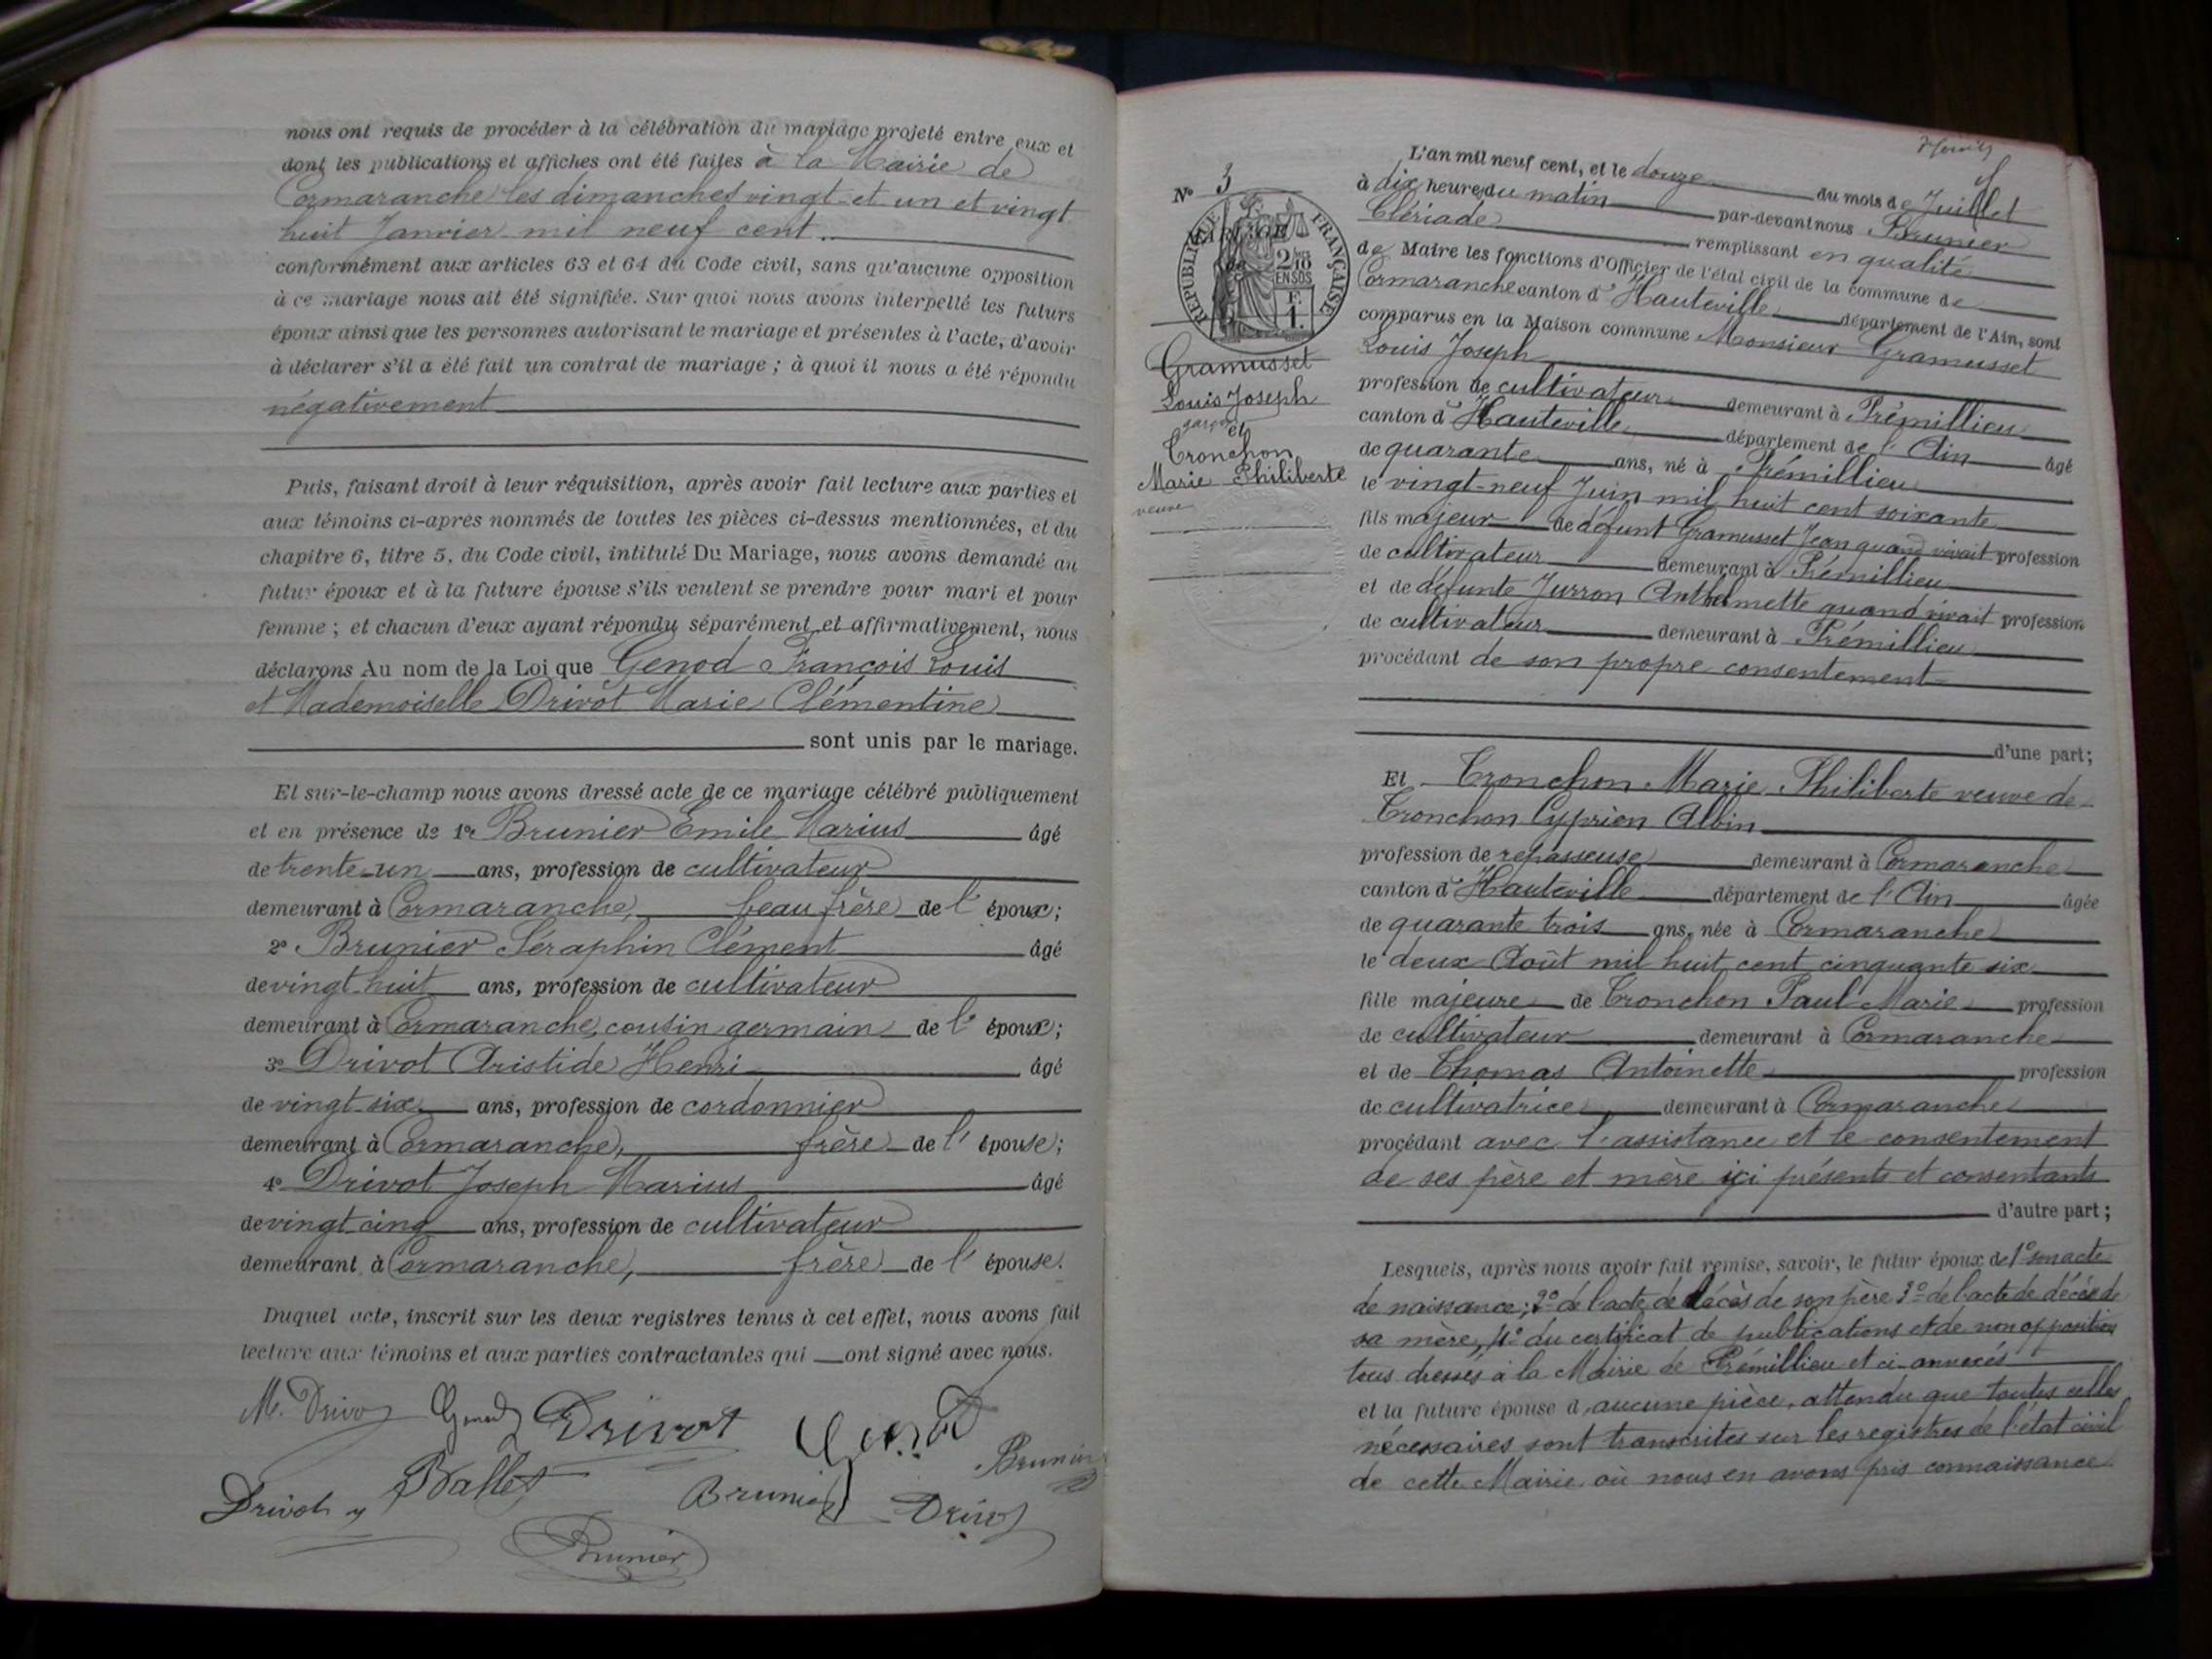 nous ont requis de procéder à la célébration du mariage projeté entre eux et
dont les publications et affiches ont été faites à la Mairie de
Cormaranche les dimanches vingt et un et vingt
huit Janvier mil neuf cent.
conformément aux articles 63 et 64 du Code civil, sans qu'aucune opposition
à ce mariage nous ait été signifiée. Sur quoi nous avons interpellé les futurs
époux ainsi que les personnes autorisant le mariage et présentes à l'acte, d'avoir
à déclarer s'il a été fait un contrat de mariage ; à quoi il nous a été répondu
négativement
Puis, faisant droit à leur réquisition, après avoir fait lecture aux parties et
aux témoins ci-après nommés de toutes les pièces ci-dessus mentionnées, et du
chapitre 6, titre 5, du Code civil, intitulé Du Mariage, nous avons demandé au
futur époux et à la future épouse s'ils veulent se prendre pour mari et pour
femme ; et chacun d'eux ayant répondu séparément et affirmativement, nous
déclarons Au nom de la Loi que Genod François Louis
et Mademoiselle Drivot Marie Clémentine
sont unis par le mariage.
Et sur-le-champ nous avons dressé acte de ce mariage célébré publiquement
et en présence de 1er Brunier Emile Marius âgé
de trente-un ans, profession de cultivateur
demeurant à Cormaranche, beau frère de l' époux;
2e Brunier Séraphin Clément âgé
de vingt-huit ans, profession de cultivateur
demeurant à Cormaranche, cousin germain de l' époux;
3e Drivot Aristide Henri âgé
de vingt-six ans, profession de cordonnier
demeurant à Cormaranche, frère de l' épouse;
4e Drivot Joseph Marius âgé
de vingt cinq ans, profession de cultivateur
demeurant à Cormaranche, frère de l' épouse.
Duquel acte, inscrit sur les deux registres tenus à cet effet, nous avons fait
lecture aux témoins et aux parties contractantes qui ont signé avec nous.
M. Drivot Genod Drivot Genod
Drivot Ballet Brunier Drivot Brunier
Brunier
N° 3
MARIAGE
de
RÉPUBLIQUE FRANÇAISE
2/10 EN SUS
F. 1.
Gramusset
Louis Joseph
garçon
et
Tronchon
Marie Philiberte
veuve
L'an mil neuf cent, et le douze du mois de Juillet
à dix heures du matin par-devant nous Brunier
Clériade remplissant en qualité
de Maire les fonctions d'Officier de l'état civil de la commune de
Cormaranche canton d' Hauteville département de l'Ain, sont
comparus en la Maison commune Monsieur Gramusset
Louis Joseph
profession de cultivateur demeurant à Prémillieu
canton d' Hauteville département de l' Ain âgé
de quarante ans, né à Prémillieu
le vingt-neuf Juin mil huit cent soixante
fils majeur de défunt Gramusset Jean quand vivait profession
de cultivateur demeurant à Prémillieu
et de défunte Jurron Anthelmette quand vivait profession
de cultivateur demeurant à Prémillieu
procédant de son propre consentement
d'une part;
Et Tronchon Marie Philiberte veuve de
Tronchon Cyprien Albin
profession de repasseuse demeurant à Cormaranche
canton d' Hauteville département de l'Ain âgée
de quarante trois ans, née à Cormaranche
le deux Août mil huit cent cinquante six
fille majeure de Tronchon Paul Marie profession
de cultivateur demeurant à Cormaranche
et de Thomas Antoinette profession
de cultivatrice demeurant à Cormaranche
procédant avec l'assistance et le consentement
de ses père et mère içi présents et consentants
d'autre part;
Lesquels, après nous avoir fait remise, savoir, le futur époux de 1° son acte
de naissance; 2° de l'acte de décès de son père 3° de l'acte de décès de
sa mère, 4° du certificat de publications et de non opposition
tous dressés à la Mairie de Prémillieu et ci-annexés
et la future épouse d'aucune pièce, attendu que toutes celles
nécessaires sont transcrites sur les registres de l'état civil
de cette Mairie où nous en avons pris connaissance